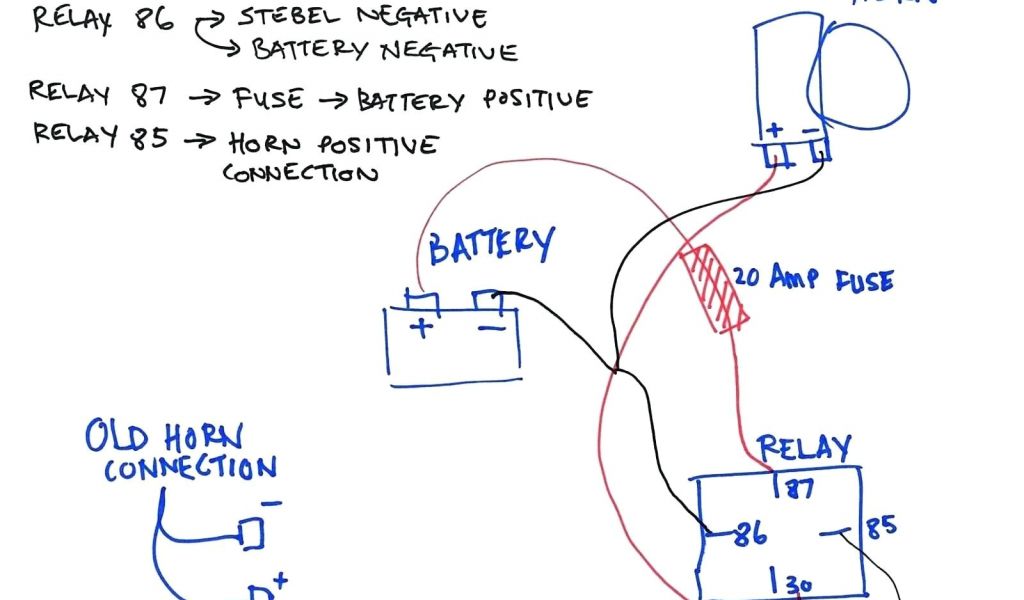 RELAY 86 → STEBEL NEGATIVE
→ BATTERY NEGATIVE
RELAY 87 → FUSE → BATTERY POSITIVE
RELAY 85 → HORN POSITIVE
CONNECTION
+ -
BATTERY
+ -
20 AMP FUSE
OLD HORN
CONNECTION
-
+
RELAY
87
86
85
30